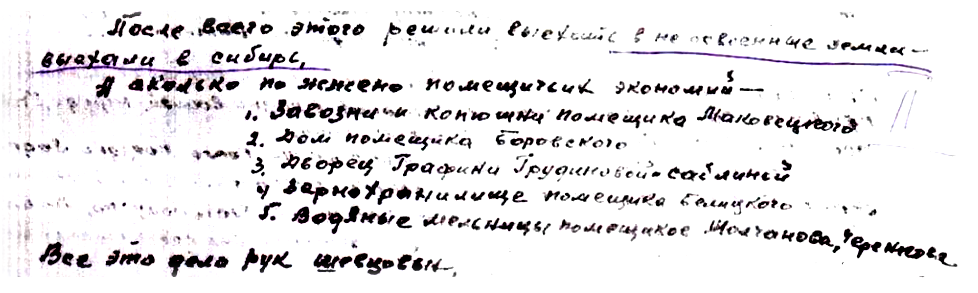 После всего этого решили выехать в не освоенные земли —
выехали в сибирь,
А сколько по жжено помещичьих экономий —
1. Завозни и конюшни помещика Маковецкого
2. Дом помещика Боровского
3. Дворец Графини Грудиновой-саблиной
4) Зернохранилище помещика Белицкого
5. Водяные мельницы помещиков Молчанова,
Все это дело рук шевцовых.